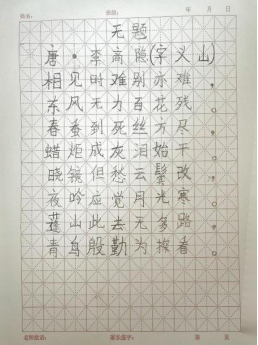 姓名: 班级: 年 月 日
无题
唐·李商隐(字义山)
相见时难别亦难,
东风无力百花残。
春蚕到死丝方尽,
蜡炬成灰泪始干。
晓镜但愁云鬓改,
夜吟应觉月光寒。
蓬山此去无多路,
青鸟殷勤为探看。